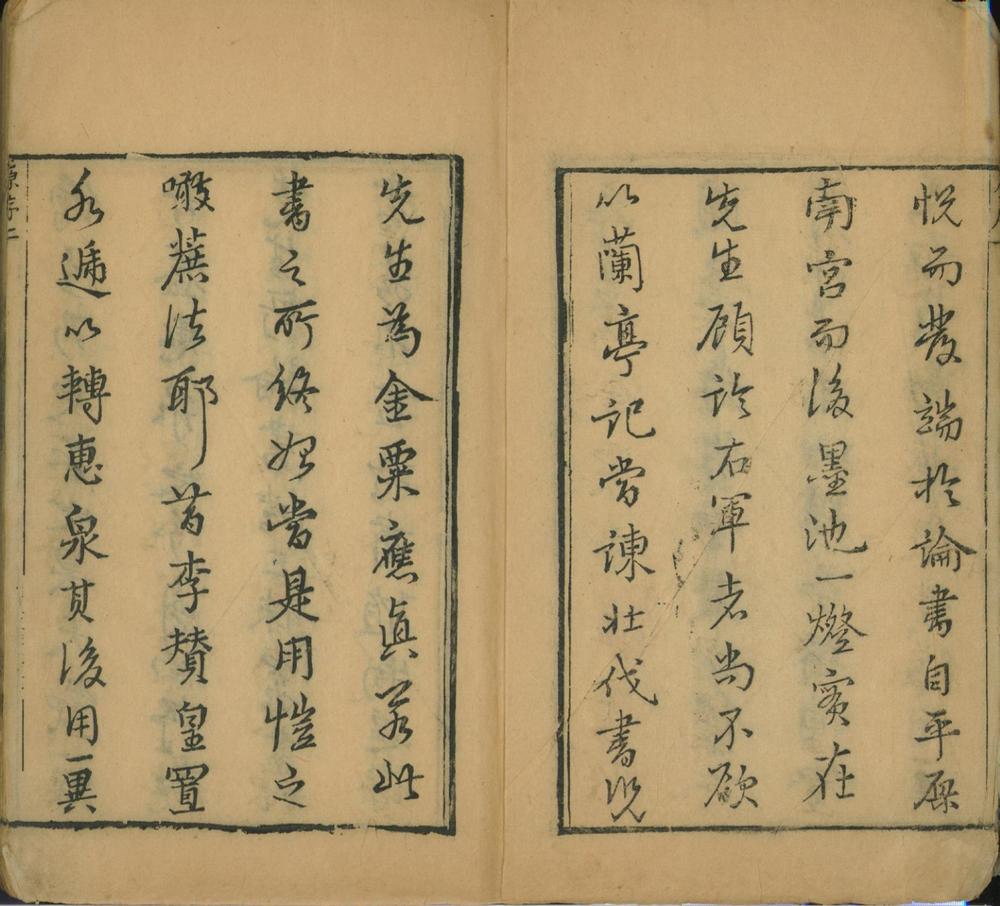 悅而發端於論書自平原
南宮而後墨池一燈實在
先生顧詅右軍者尚不願
以蘭亭記嘗諫壯伐書況
先生為金粟應眞若此
書之所終始嘗是用愷之
噉蔗法耶昔李贊皇置
水遞以轉惠泉其後用一異